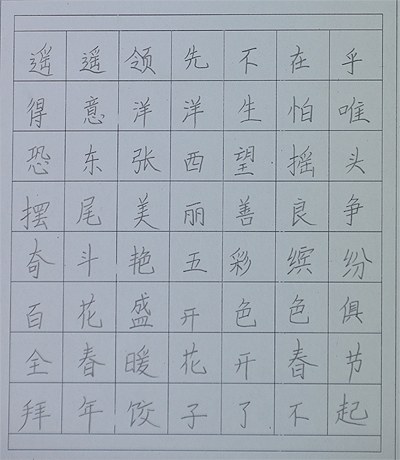 遥遥领先不在乎
得意洋洋生怕唯
恐东张西望摇头
摆尾美丽善良争
奇斗艳五彩缤纷
百花盛开色色俱
全春暖花开春节
拜年饺子了不起